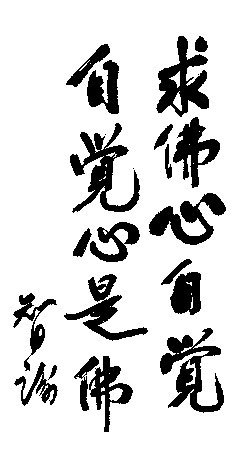 求佛心自覚
自覚心是佛
智諭